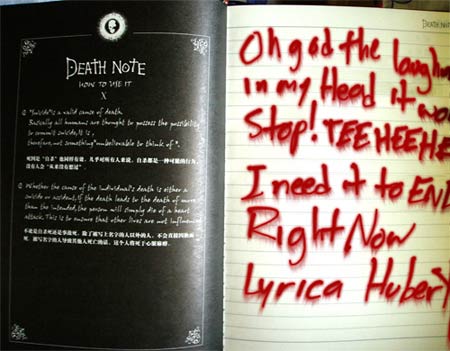 DEATH NOTE
HOW TO USE IT
X
"Suicide" is a valid cause of death.
Basically all humans are thought to possess the possibility
to commit suicide. It is ,
therefore, not something "unbelievable to think of ".
死因是“自杀”也同样有效。几乎对所有人来说,自杀都是一种可能的行为,
没有人会“从来没有想过”
Whether the cause of the individual's death is either a
suicide or accident, If the death leads to the death of more
than the intended, the person will simply die of a heart
attack. This is to ensure that other lives are not influenced.
自杀还是事故死,除了被写上名字的人以外的人,不会直接因
死。被写名字的人导致其他人死亡的话,这个人将死于心脏麻痹。
DEATH NOTE
Oh god the laughin
in my Head it wo
Stop! TEEHEEHE
I need it to END
Right Now
Lyrica Hubert